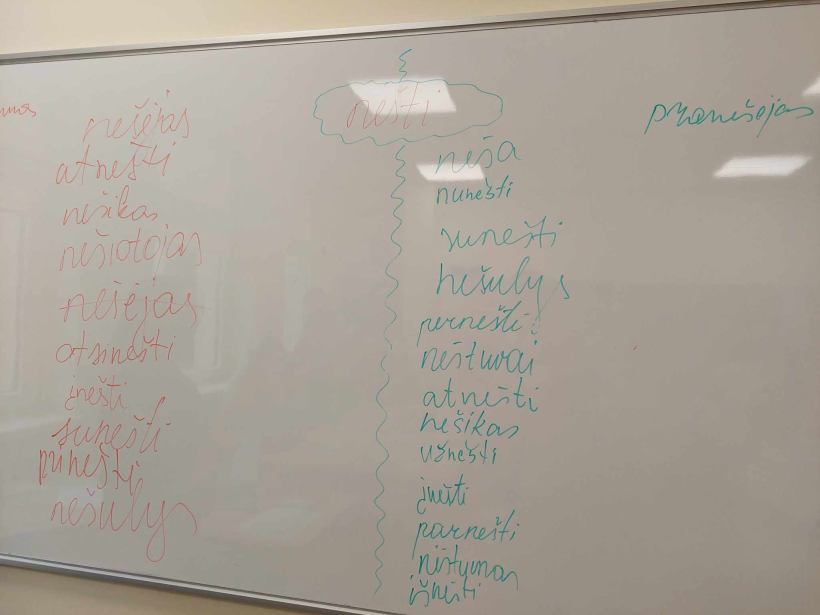 nešti
nešėjas
atnešti
nešikas
nešiotojas
nešėjas
atsinešti
įnešti
sunešti
prinešti
nešulys
neša
nunešti
sunešti
nešulys
pernešti
neštuvai
atnešti
nešikas
užnešti
įnešti
parnešti
neštumas
išnešti
pranešėjas